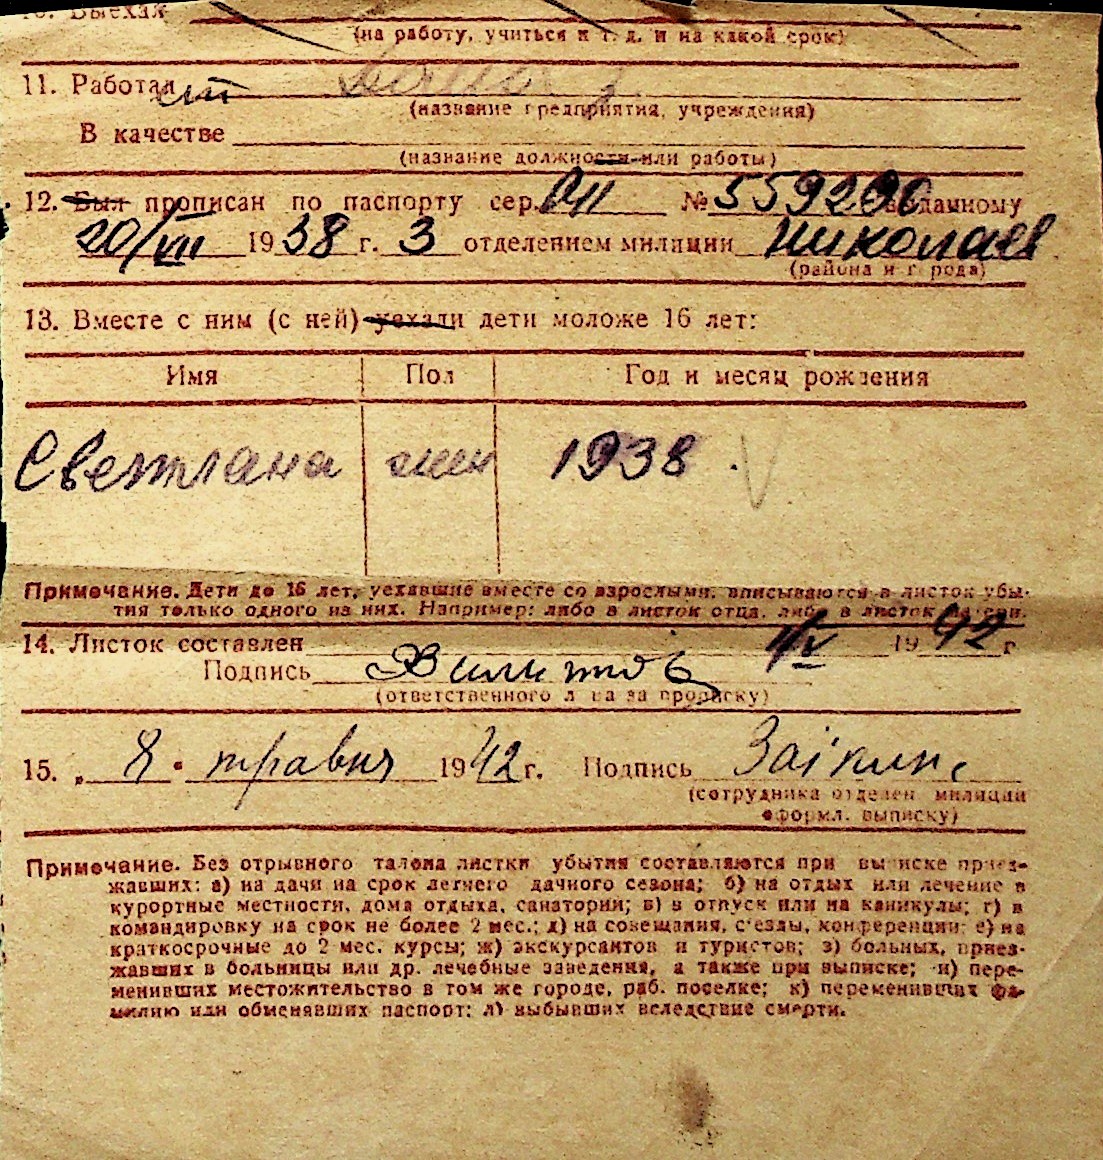 10. Выехал
(на работу, учиться и т. д. и на какой срок)
11. Работал
(название предприятия, учреждения)
В качестве
(название должности или работы)
12. Был прописан по паспорту сер. № 559290 выданному
20/VII 1938 г. 3 отделением милиции Николаев
(района и города)
13. Вместе с ним (с ней) уехали дети моложе 16 лет:
Имя Пол Год и месяц рождения
Светлана жен 1938.
Примечание. Дети до 16 лет, уехавшие вместе со взрослыми, вписываются в листок убы-
тия только одного из них. Например: либо в листок отца, либо в листок матери.
14. Листок составлен 1/V 1942 г
Подпись
(ответственного лица за прописку)
15. „ 8 “ травня 1942 г. Подпись
(сотрудника отделен. милиции
оформл. выписку)
Примечание. Без отрывного талона листки убытия составляются при выписке приез-
жавших: а) на дачи на срок летнего дачного сезона; б) на отдых или лечение в
курортные местности, дома отдыха, санатории; в) в отпуск или на каникулы; г) в
командировку на срок не более 2 мес.; д) на совещания, с'езды, конференции; е) на
краткосрочные до 2 мес. курсы; ж) экскурсантов и туристов; з) больных, приез-
жавших в больницы или др. лечебные заведения, а также при выписке; и) пере-
менивших местожительство в том же городе, раб. поселке; к) переменивших фа-
милию или обменявших паспорт; л) выбывших вследствие смерти.